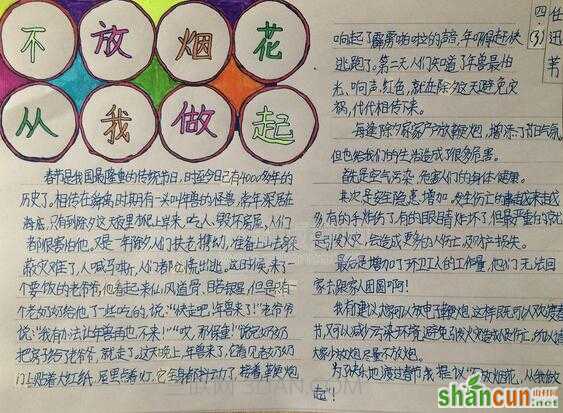 不放烟花
从我做起
四(3)
任迅节
春节是我国最隆重的传统节日,时至今日已有4000多年的
历史了。相传在尧舜时期有一头叫年兽的怪兽,常年深居在
海底,只有到除夕这天夜里爬上岸来,吃人、毁坏房屋,人们
都很畏惧他。又是一年除夕人们扶老携幼,准备上山去躲
蔽灾难了,人喊马嘶,人们都仓慌出逃。这时候,来了
一个要饭的老爷爷,他看起来仙风道骨、目若银星,但是只有一
个老奶奶给他了一些吃的,说:“快走吧,年兽来了!”老爷爷
说:“我有办法让年兽再也不来!”“哎,那保重!”说完奶奶
把房子给了老爷爷,就走了。这天晚上,年兽来了,它看见老奶奶
门上贴着大红纸,屋里点着灯,它全身都抖动了,接着
响起了霹雳啪啦的声音,年吓得赶快
逃跑了。第二天人们知道了年兽最怕
光、响声、红色,就在除夕这天避免灾
祸,代代相传下来。
每逢除夕家家户户放鞭炮,增添了节日气氛,
但也给我们的生活造成了很多危害。
首先是空气污染,危害人们的身体健康。
其次是安全隐患增加。发生伤亡的事故越来越
多,有的手炸伤了,有的眼睛炸坏了,但最严重的
是引发火灾,会造成更多的人伤亡及财产损失。
最后是增加了环卫工人的工作量,他们无法回
家去跟家人团圆啊!
我有建议大家可以放电子鞭炮,这样既可以欢度春
节,又可以减少污染环境,避免引发火灾造成人员伤亡。所以请
大家少放炮,尽量不放炮。
“不放烟花,从我做
起”!
shancun
山村网
.com